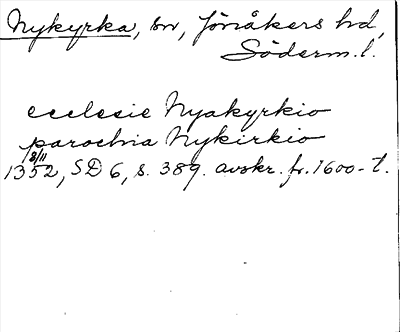 Nykyrka, sn, Jönåkers hd,
Söderm. l.
ecclesie Nyakyrkio
parochia Nykirkio
18/11
1352, SD 6, s. 389. avskr. fr. 1600-t.